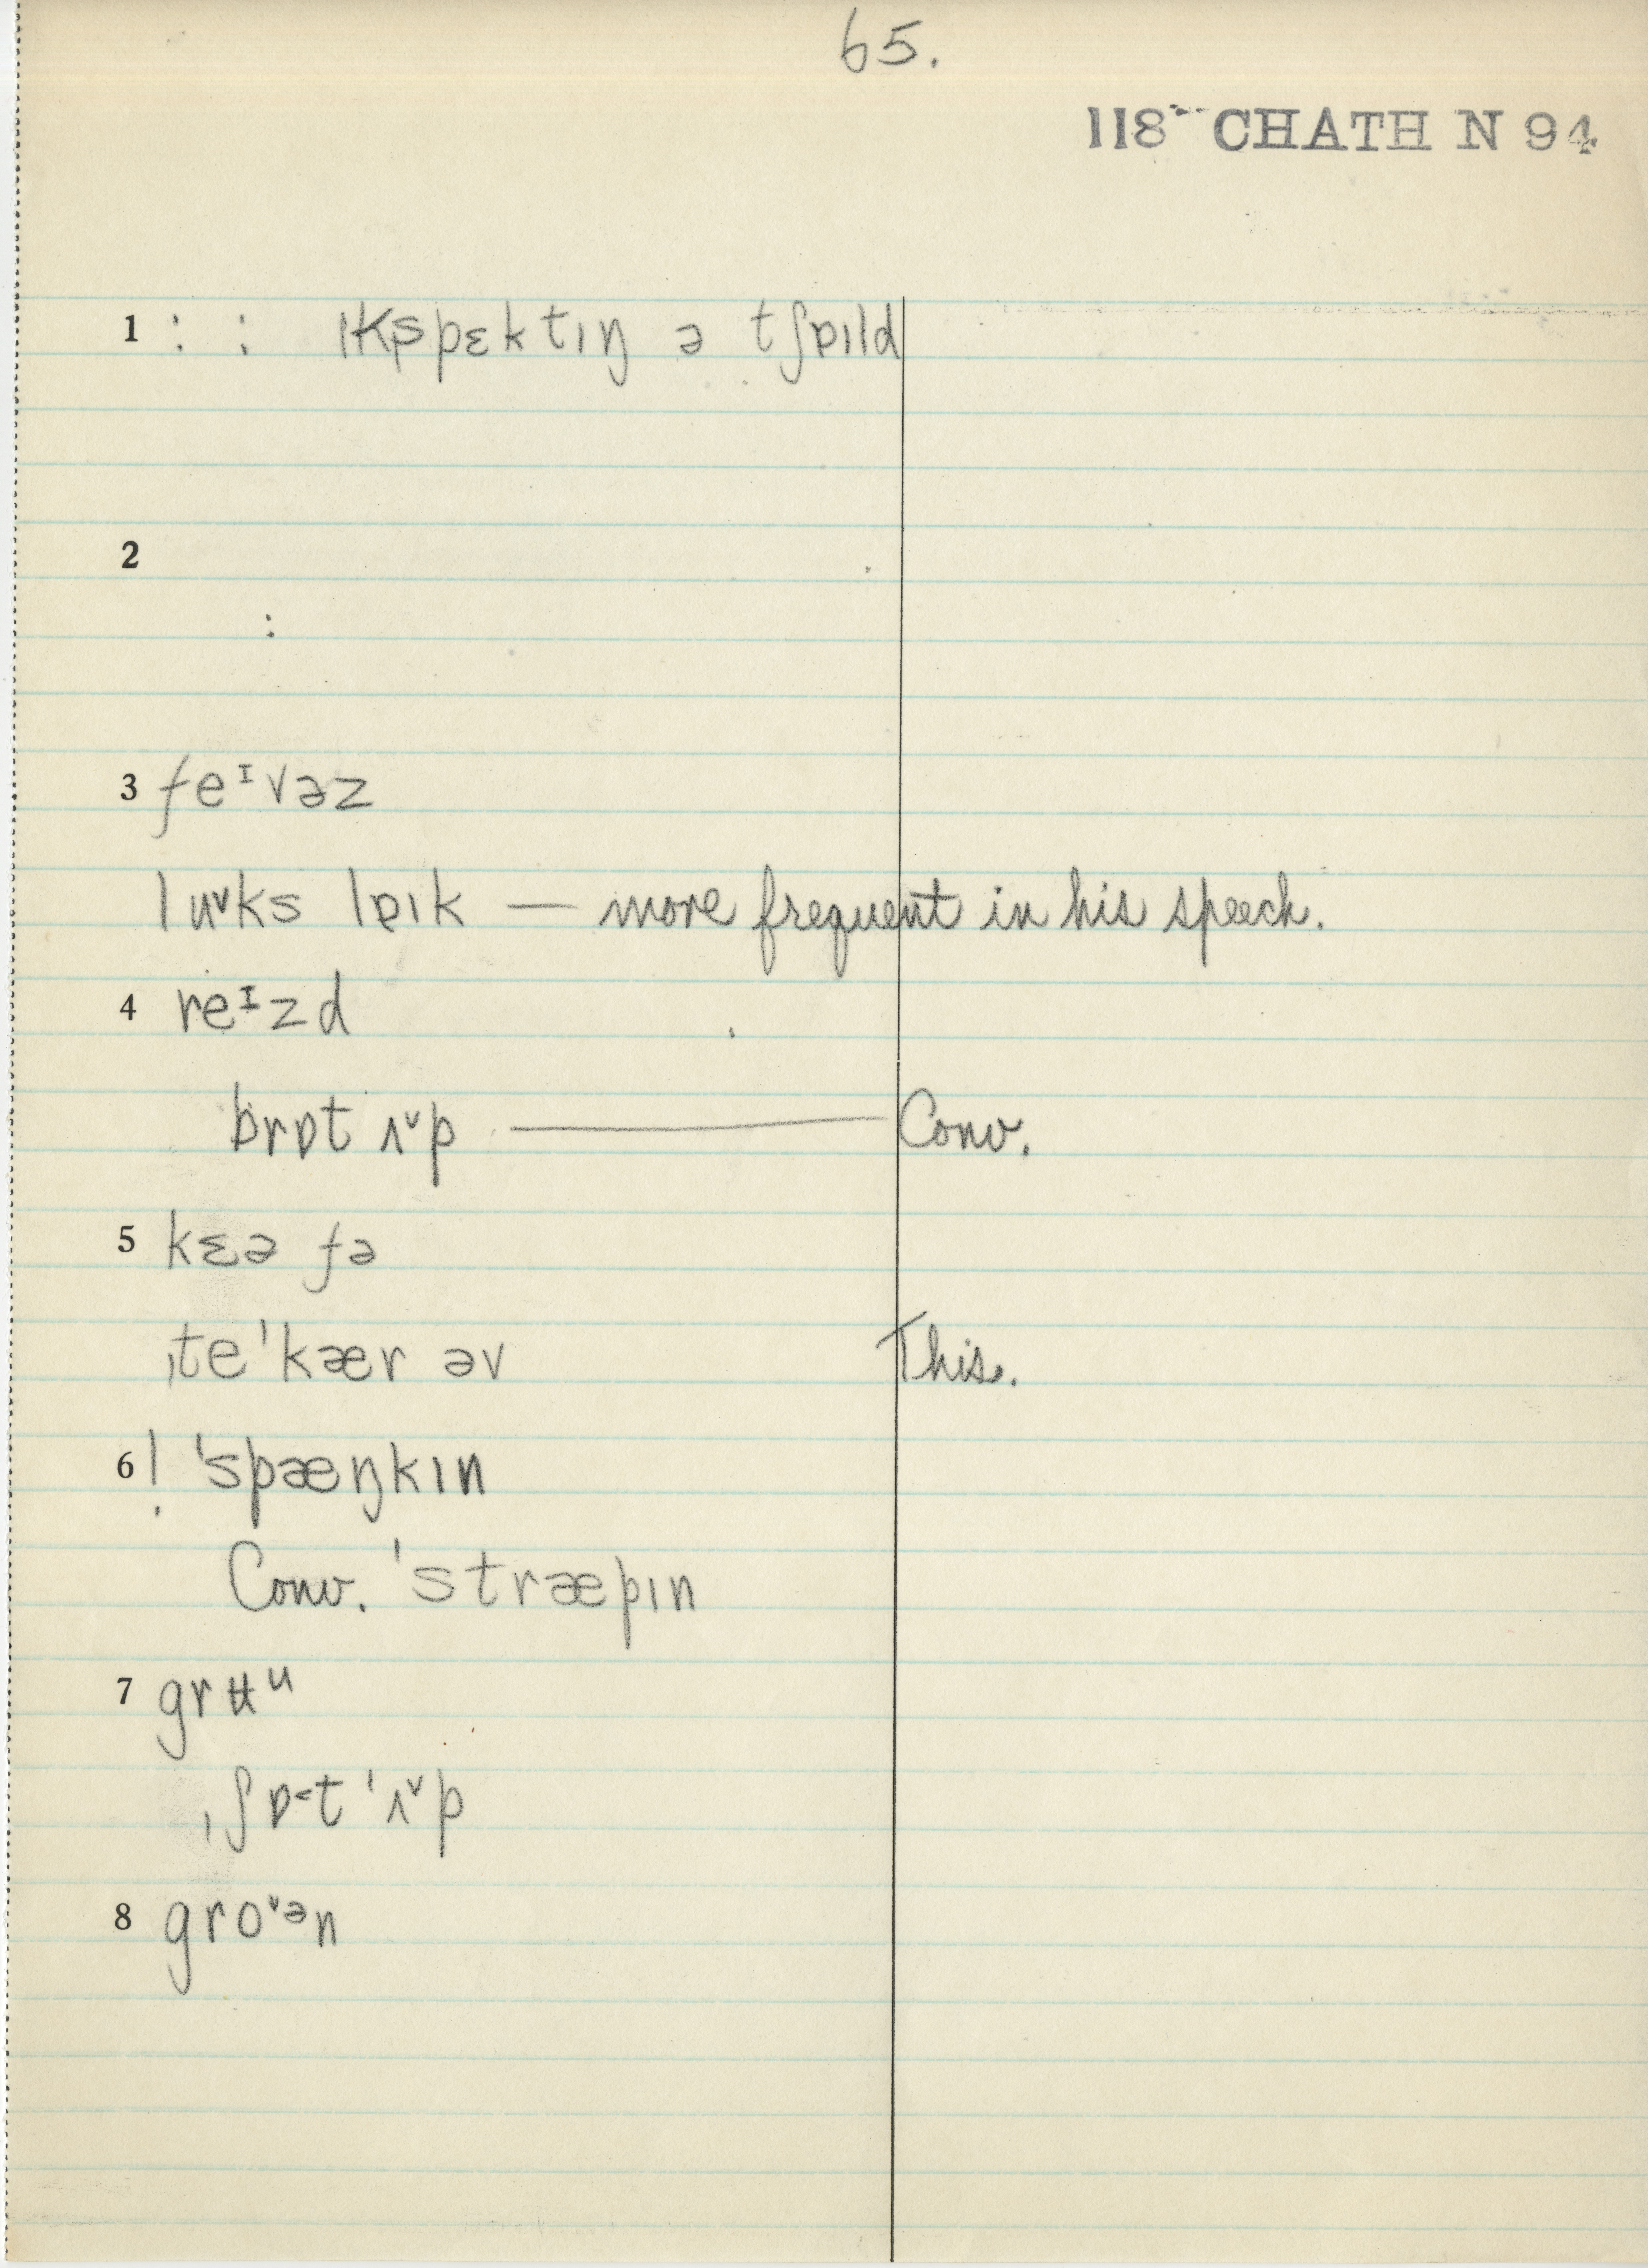 65.
118 CHATH N 94
1 : : ɪkspɛktɪŋ ə tʃɒɪld
2
:
3 feᶦvəz
lu˅ks lɐɪk — more frequent in his speech.
4 reᶦzd
brɒt ʌ˅p — Conv.
5 kɛə fə
ˌte'kær əv This.
6 ! 'spæŋkɪn
Conv. 'stræpɪn
7 grʉᵘ
ˌʃɒ˂t 'ʌ˅p
8 gro˅ᵊn